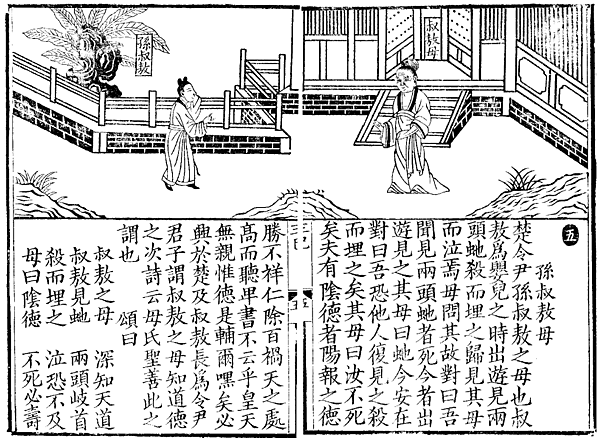 叔敖母
孫叔敖
五
孫叔敖母
楚令尹孫叔敖之母也叔
敖爲嬰兒之時出遊見兩
頭虵殺而埋之歸見其母
而泣焉母問其故對曰吾
聞見兩頭虵者死今者出
遊見之其母曰虵今安在
對曰吾恐他人復見之殺
而埋之矣其母曰汝不死
矣夫有陰德者陽報之德
勝不祥仁除百禍天之處
髙而聽卑書不云乎皇天
無親惟德是輔爾嘿矣必
興於楚及叔敖長爲令尹
君子謂叔敖之母知道德
之次詩云母氏聖善此之
謂也 頌曰
叔敖之母 深知天道
叔敖見虵 兩頭岐首
殺而埋之 泣恐不及
母曰陰德 不死必壽